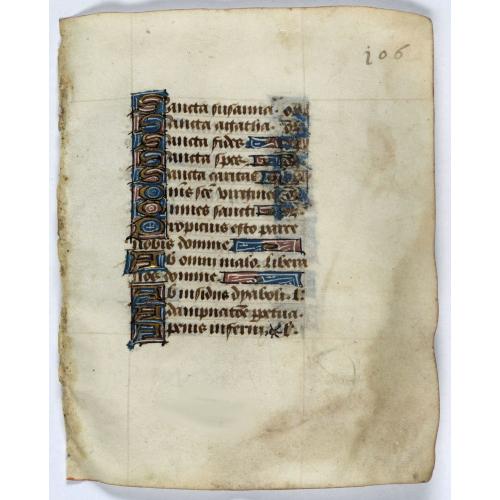 106
Sancta susanna. or
Sancta agatha. or
Sancta fides
Sancta spes.
Sancta caritas
Omēs sce virgines
Omnes sancti
Propicius esto parce
nobis domine
Ab omni malo. libera
nos domine
Ab insidiis dyaboli. l.
A dampnatōe ꝑpetua.
A penis inferni. l.